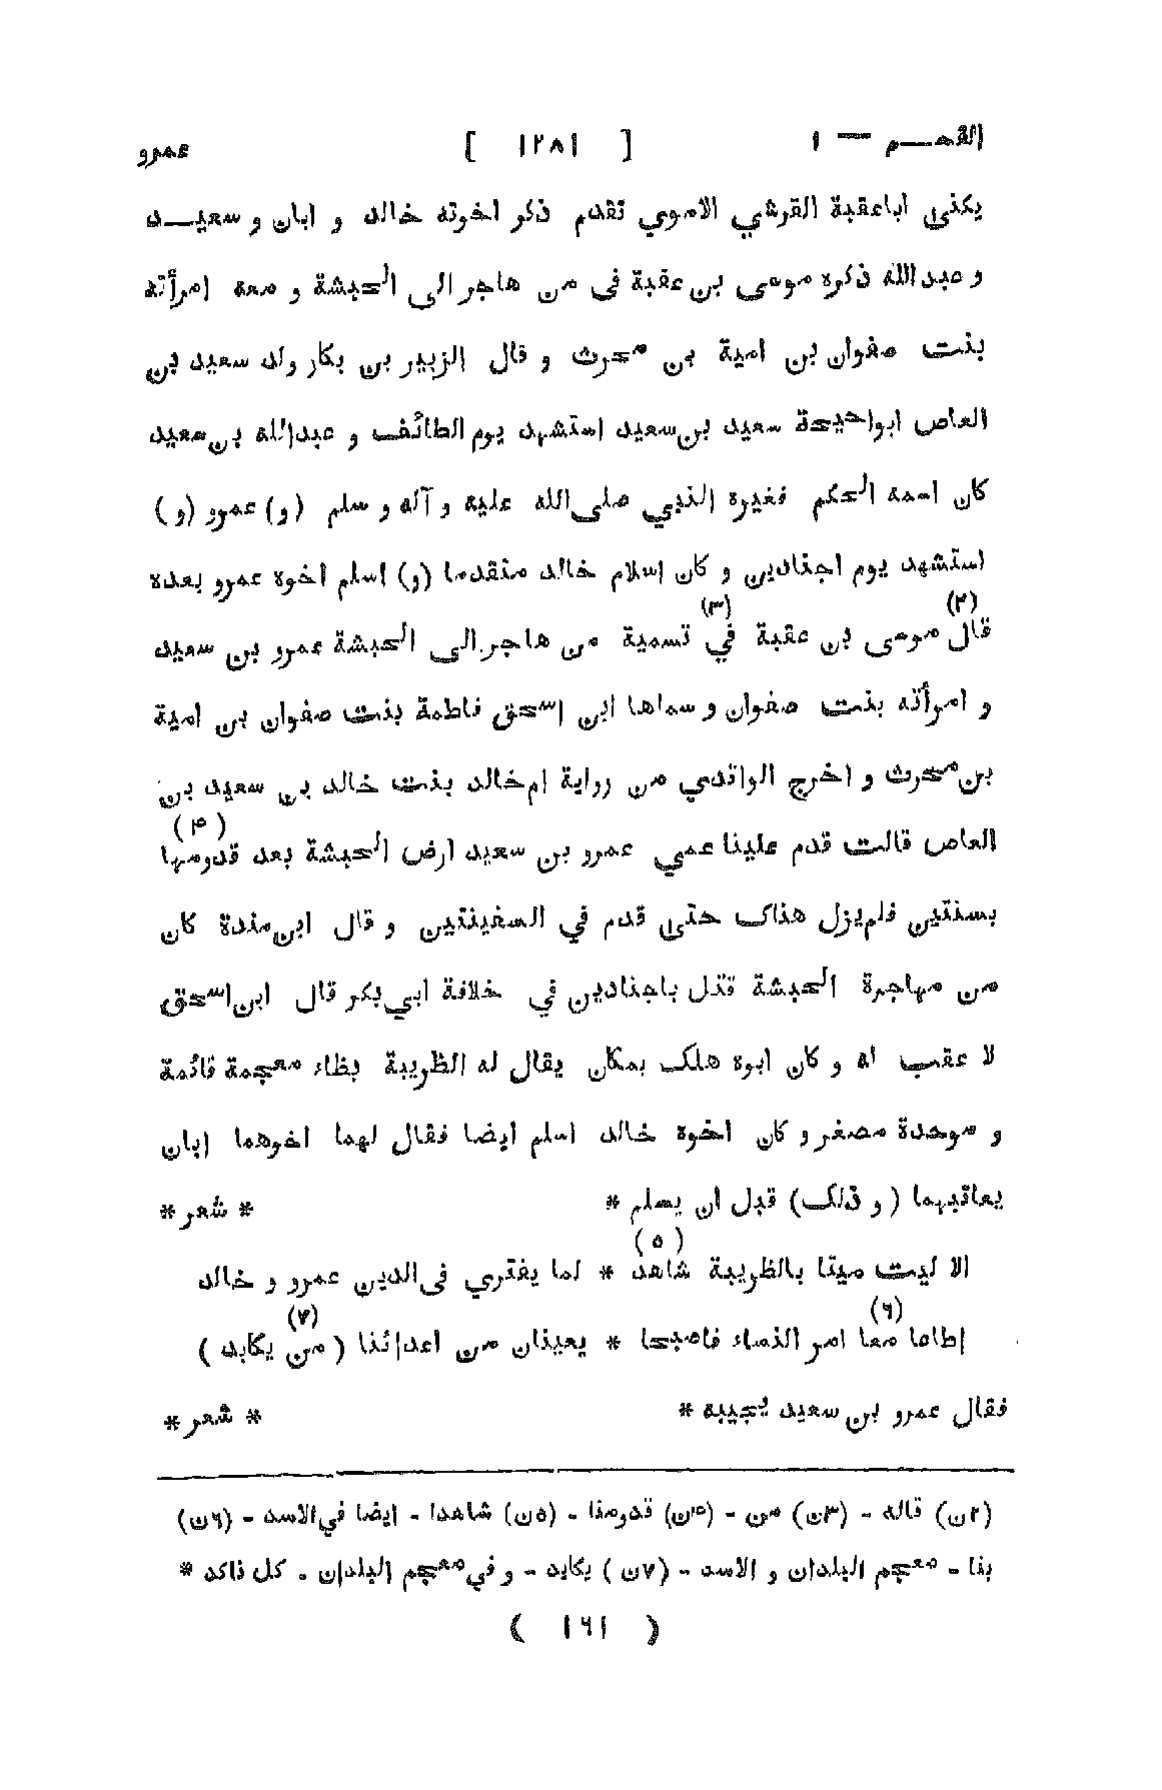 القســم — ١ [ ١٢٨١ ] عمرو
يكنى اباعقبة القرشي الاموي تقدم ذكر اخوته خالد و ابان و سعيــد
و عبدالله ذكره موسى بن عقبة فى من هاجر الى الحبشة و معه امرأته
بنت صفوان بن امية بن محرث و قال الزبير بن بكار ولد سعيد بن
العاص ابواحيحة سعيد بن سعيد استشهد يوم الطائف و عبدالله بن سعيد
كان اسمه الحكم فغيره النبي صلى الله عليه و آله و سلم (و) عمرو (و)
استشهد يوم اجنادين و كان اسلام خالد متقدما (و) اسلم اخوه عمرو بعده
(٢) (٣)
قال موسى بن عقبة في تسمية من هاجر الى الحبشة عمرو بن سعيد
و امرأته بنت صفوان و سماها ابن اسحق فاطمة بنت صفوان بن امية
بن محرث و اخرج الواقدي من رواية ام خالد بنت خالد بن سعيد بن
(۴)
العاص قالت قدم علينا عمي عمرو بن سعيد ارض الحبشة بعد قدومها
بسنتين فلم يزل هناك حتى قدم في السفينتين و قال ابن مندة كان
من مهاجرة الحبشة قتل باجنادين في خلافة ابي بكر قال ابن اسحق
لا عقب له و كان ابوه هلك بمكان يقال له الظريبة بظاء معجمة قائمة
و موحدة مصغر و كان اخوه خالد اسلم ايضا فقال لهما اخوهما ابان
يعاقبهما ( و ذلك) قبل ان يسلم * * شعر *
(٥)
الا ليت ميتا بالظريبة شاهد * لما يفتري فى الدين عمرو و خالد
(٦) (٧)
اطاعا معا امر النساء فاصبحا * يعينان من اعدائنا ( من يكابد )
فقال عمرو بن سعيد يجيبه * * شعر *
(٢ن) قاله - (٣ن) من - (۴ن) قدومنا - (٥ن) شاهدا - ايضا في الاسد - (٦ن)
بنا - معجم البلدان و الاسد - (٧ن) يكايد - و في معجم البلدان . كل ناكد *
( ١٦١ )